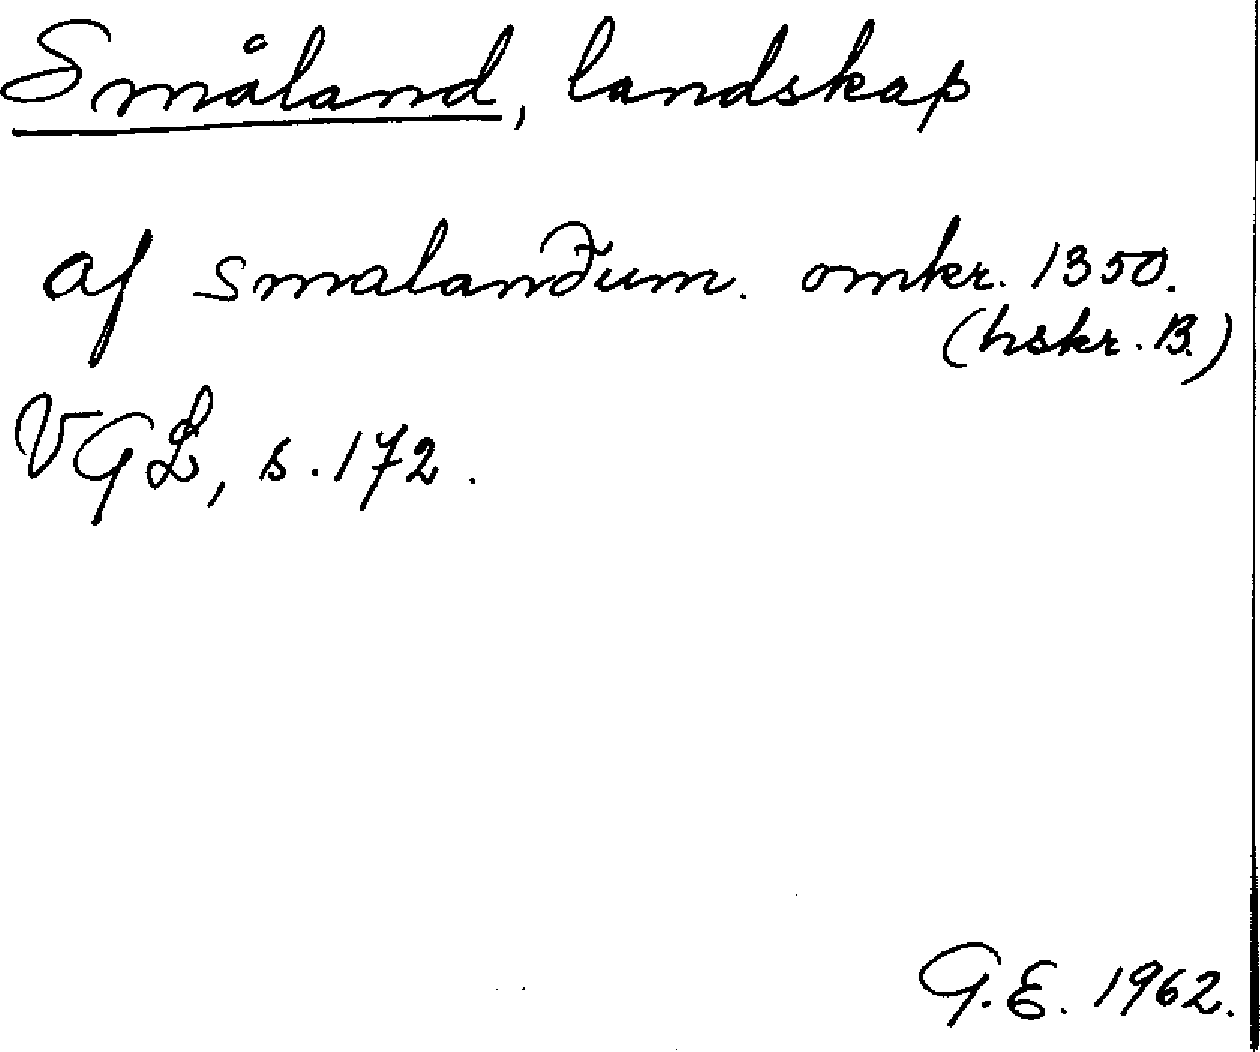 Småland, landskap
af smalandum. omkr. 1350.
(hskr. B.)
VGL, s. 172.
G.E. 1962.